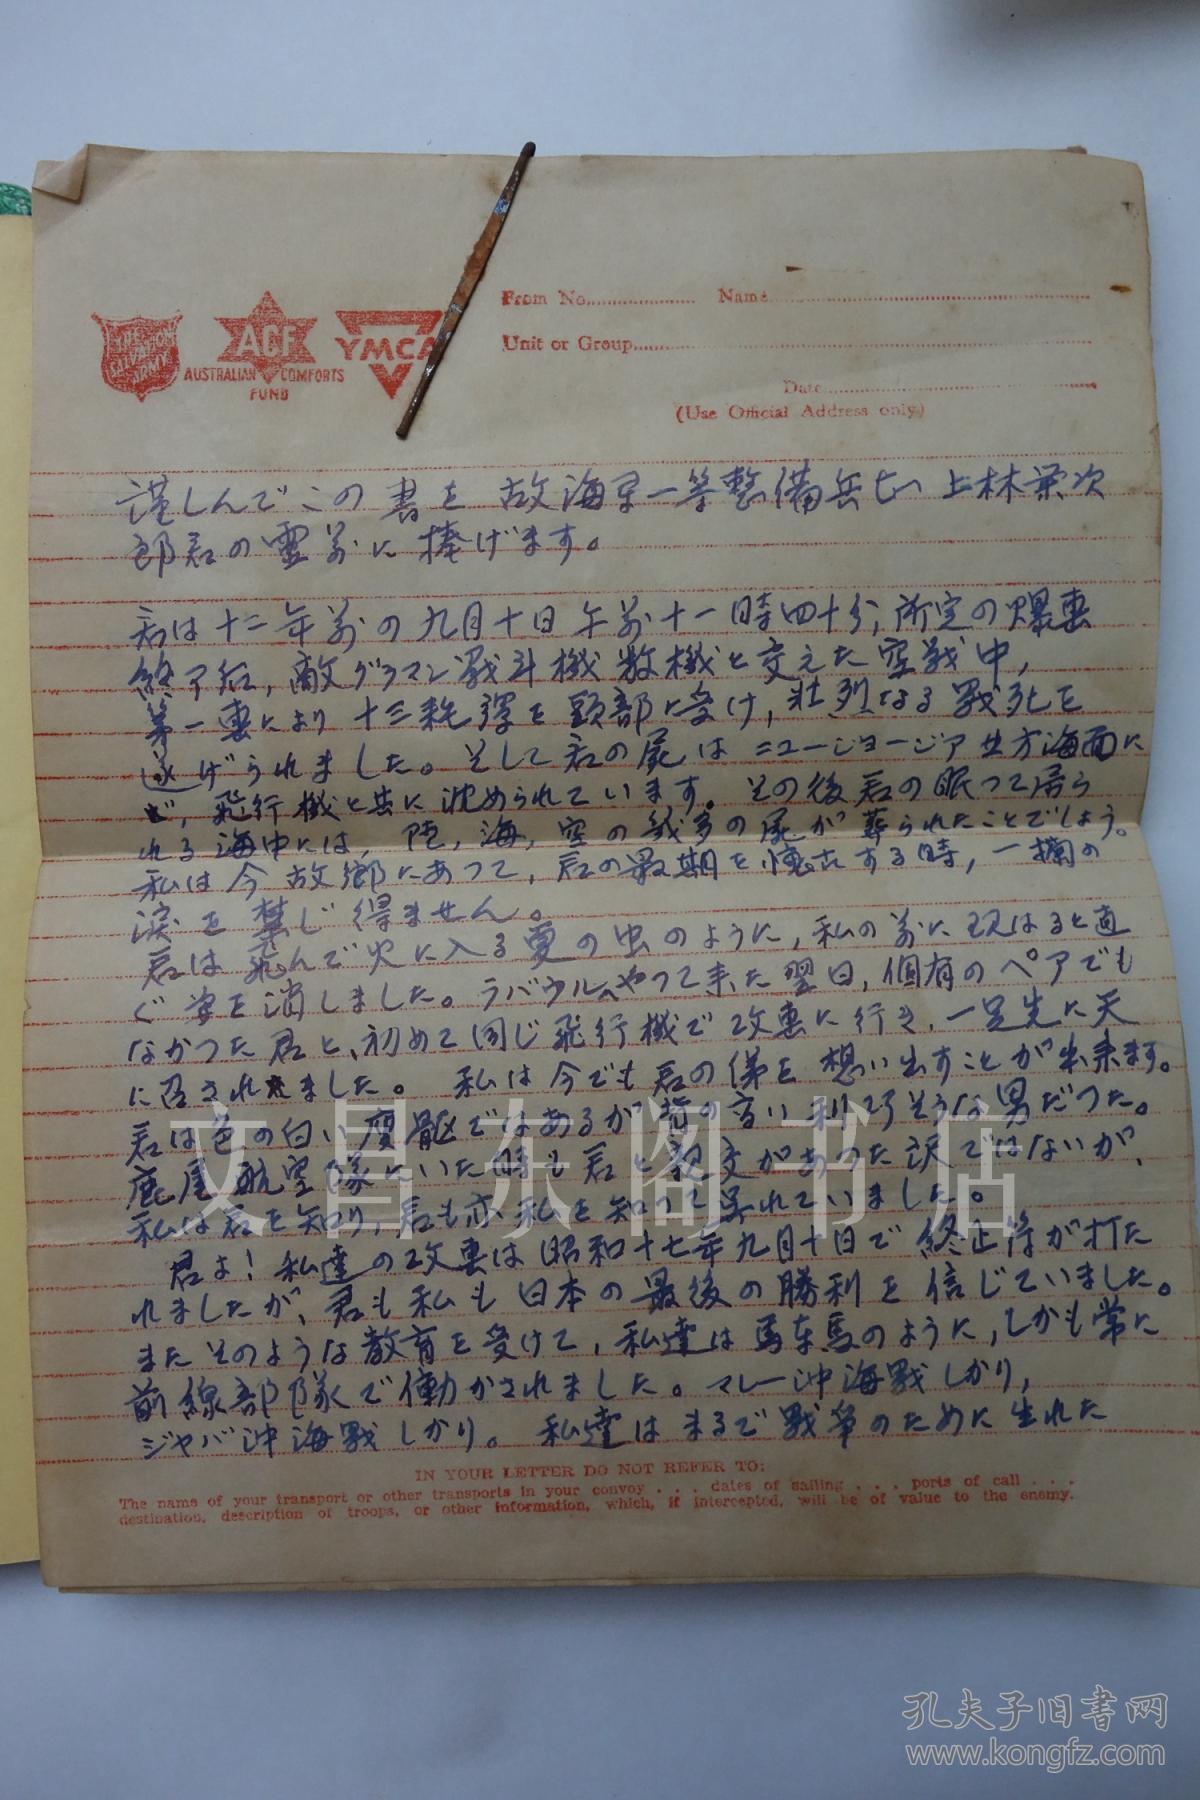 From No. Name
Unit or Group
Date
(Use Official Address only)
THE SALVATION ARMY
ACF
AUSTRALIAN COMFORTS
FUND
YMCA
謹しんでこの書を故海軍一等整備兵曹 上林栄次
郎君の霊前に捧げます。
君は十二年前の九月十日午前十一時四十分,所定の爆撃
終了后,敵グラマン戦斗機数機と交えた空戦中,
第一撃により十三粍弾を頭部に受け,壮烈なる戦死を
遂げられました。そして君の屍はニュージョージア北方海面に
,飛行機と共に沈められています。その後君の眠つて居ら
れる海中には,陸,海,空の幾多の屍が葬られたことでしょう。
私は今故郷にあつて,君の最期を懐古する時,一掬の
涙を禁じ得ません。
君は飛んで火に入る夏の虫のように,私の前に現はると直
ぐ姿を消しました。ラバウルへやつて来た翌日,個有のペアでも
なかつた君と、初めて同じ飛行機で攻撃に行き、一足先に天
に召されました。 私は今でも君の俤を想い出すことが出来ます。
君は色の白い痩躯ではあるが背の高い利巧そうな男だつた。
鹿屋航空隊にいた時も君と親交があつた訳ではないが、
私は君を知り,君も亦私を知つて呉れていました。
君よ!私達の攻撃は昭和十七年九月十日で終止符が打た
れましたが、君も私も日本の最後の勝利を信じていました。
またそのような教育を受けて,私達は馬車馬のように,しかも常に
前線部隊で働かされました。マレー沖海戦しかり,
ジャバ沖海戦しかり。 私達はまるで戦争のために生れた
IN YOUR LETTER DO NOT REFER TO:
The name of your transport or other transports in your convoy . . . dates of sailing . . . ports of call . . .
destination, description of troops, or other information, which, if intercepted, will be of value to the enemy.
文昌东阁书店
孔夫子旧书网
www.kongfz.com